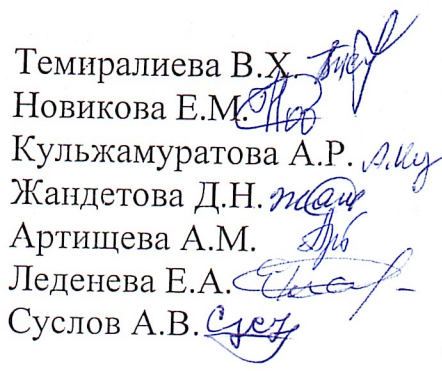 Темиралиева В.Х.
Новикова Е.М.
Кульжамуратова А.Р.
Жандетова Д.Н.
Артищева А.М.
Леденева Е.А.
Суслов А.В.